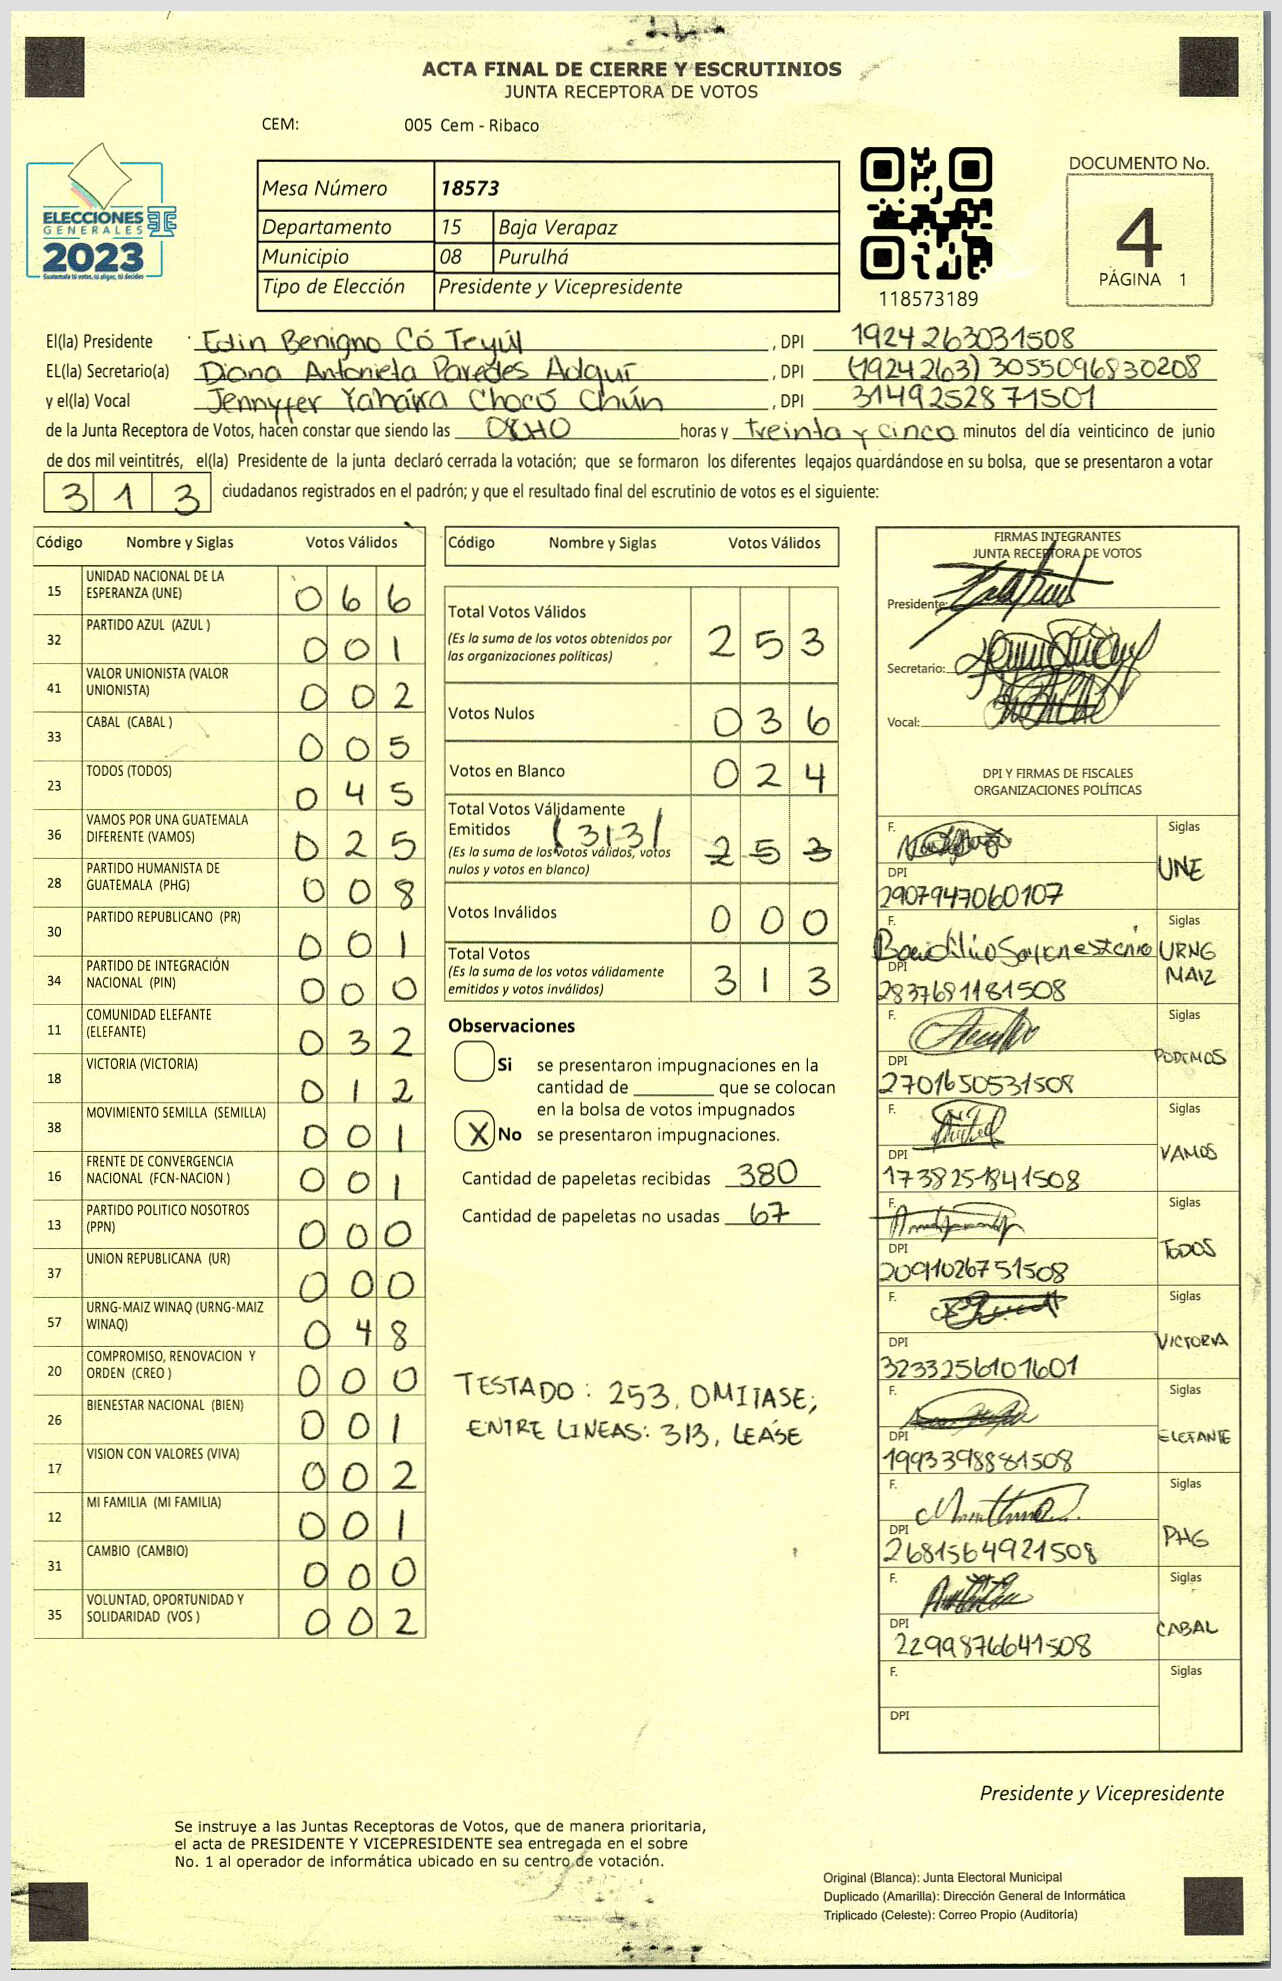 ACTA FINAL DE CIERRE Y ESCRUTINIOS
JUNTA RECEPTORA DE VOTOS
CEM: 005 Cem - Ribaco
ELECCIONES
GENERALES
2023
Guatemala tú votas, tú eliges, tú decides
Mesa Número 18573
Departamento 15 Baja Verapaz
Municipio 08 Purulhá
Tipo de Elección Presidente y Vicepresidente
118573189
DOCUMENTO No.
4
PÁGINA 1
El(la) Presidente Edin Benigno Có Teyúl , DPI 1924263031508
EL(la) Secretario(a) Diana Antonieta Paredes Adquí , DPI (1924263) 3055096830208
y el(la) Vocal Jennyfer Yahaira Chocó Chún , DPI 3149252871501
de la Junta Receptora de Votos, hacen constar que siendo las OCHO horas y treinta y cinco minutos del día veinticinco de junio
de dos mil veintitrés, el(la) Presidente de la junta declaró cerrada la votación; que se formaron los diferentes legajos guardándose en su bolsa, que se presentaron a votar
313 ciudadanos registrados en el padrón; y que el resultado final del escrutinio de votos es el siguiente:
Código Nombre y Siglas Votos Válidos
15 UNIDAD NACIONAL DE LA ESPERANZA (UNE) 066
32 PARTIDO AZUL (AZUL ) 001
41 VALOR UNIONISTA (VALOR UNIONISTA) 002
33 CABAL (CABAL ) 005
23 TODOS (TODOS) 045
36 VAMOS POR UNA GUATEMALA DIFERENTE (VAMOS) 025
28 PARTIDO HUMANISTA DE GUATEMALA (PHG) 008
30 PARTIDO REPUBLICANO (PR) 001
34 PARTIDO DE INTEGRACIÓN NACIONAL (PIN) 000
11 COMUNIDAD ELEFANTE (ELEFANTE) 032
18 VICTORIA (VICTORIA) 012
38 MOVIMIENTO SEMILLA (SEMILLA) 001
16 FRENTE DE CONVERGENCIA NACIONAL (FCN-NACION ) 001
13 PARTIDO POLITICO NOSOTROS (PPN) 000
37 UNION REPUBLICANA (UR) 000
57 URNG-MAIZ WINAQ (URNG-MAIZ WINAQ) 048
20 COMPROMISO, RENOVACION Y ORDEN (CREO ) 000
26 BIENESTAR NACIONAL (BIEN) 001
17 VISION CON VALORES (VIVA) 002
12 MI FAMILIA (MI FAMILIA) 001
31 CAMBIO (CAMBIO) 000
35 VOLUNTAD, OPORTUNIDAD Y SOLIDARIDAD (VOS ) 002
Código Nombre y Siglas Votos Válidos
Total Votos Válidos 253
(Es la suma de los votos obtenidos por
las organizaciones políticas)
Votos Nulos 036
Votos en Blanco 024
Total Votos Válidamente
Emitidos (313) 253
(Es la suma de los votos válidos, votos
nulos y votos en blanco)
Votos Inválidos 000
Total Votos 313
(Es la suma de los votos válidamente
emitidos y votos inválidos)
Observaciones
Si se presentaron impugnaciones en la
cantidad de ________ que se colocan
en la bolsa de votos impugnados
X No se presentaron impugnaciones.
Cantidad de papeletas recibidas 380
Cantidad de papeletas no usadas 67
TESTADO: 253, OMITASE;
ENTRE LINEAS: 313, LEASE
FIRMAS INTEGRANTES
JUNTA RECEPTORA DE VOTOS
Presidente:
Secretario:
Vocal:
DPI Y FIRMAS DE FISCALES
ORGANIZACIONES POLÍTICAS
F. Siglas
UNE
DPI
2907947060107
F. Siglas
URNG
MAIZ
DPI
2837681181508
F. Siglas
PODEMOS
DPI
2701650531508
F. Siglas
VAMOS
DPI
1738251841508
F. Siglas
TODOS
DPI
2091026751508
F. Siglas
VICTORIA
DPI
3233256101601
F. Siglas
ELEFANTE
DPI
1993398881508
F. Siglas
PHG
DPI
2681564921508
F. Siglas
CABAL
DPI
2299876641508
F. Siglas
DPI
Presidente y Vicepresidente
Se instruye a las Juntas Receptoras de Votos, que de manera prioritaria,
el acta de PRESIDENTE Y VICEPRESIDENTE sea entregada en el sobre
No. 1 al operador de informática ubicado en su centro de votación.
Original (Blanca): Junta Electoral Municipal
Duplicado (Amarilla): Dirección General de Informática
Triplicado (Celeste): Correo Propio (Auditoría)